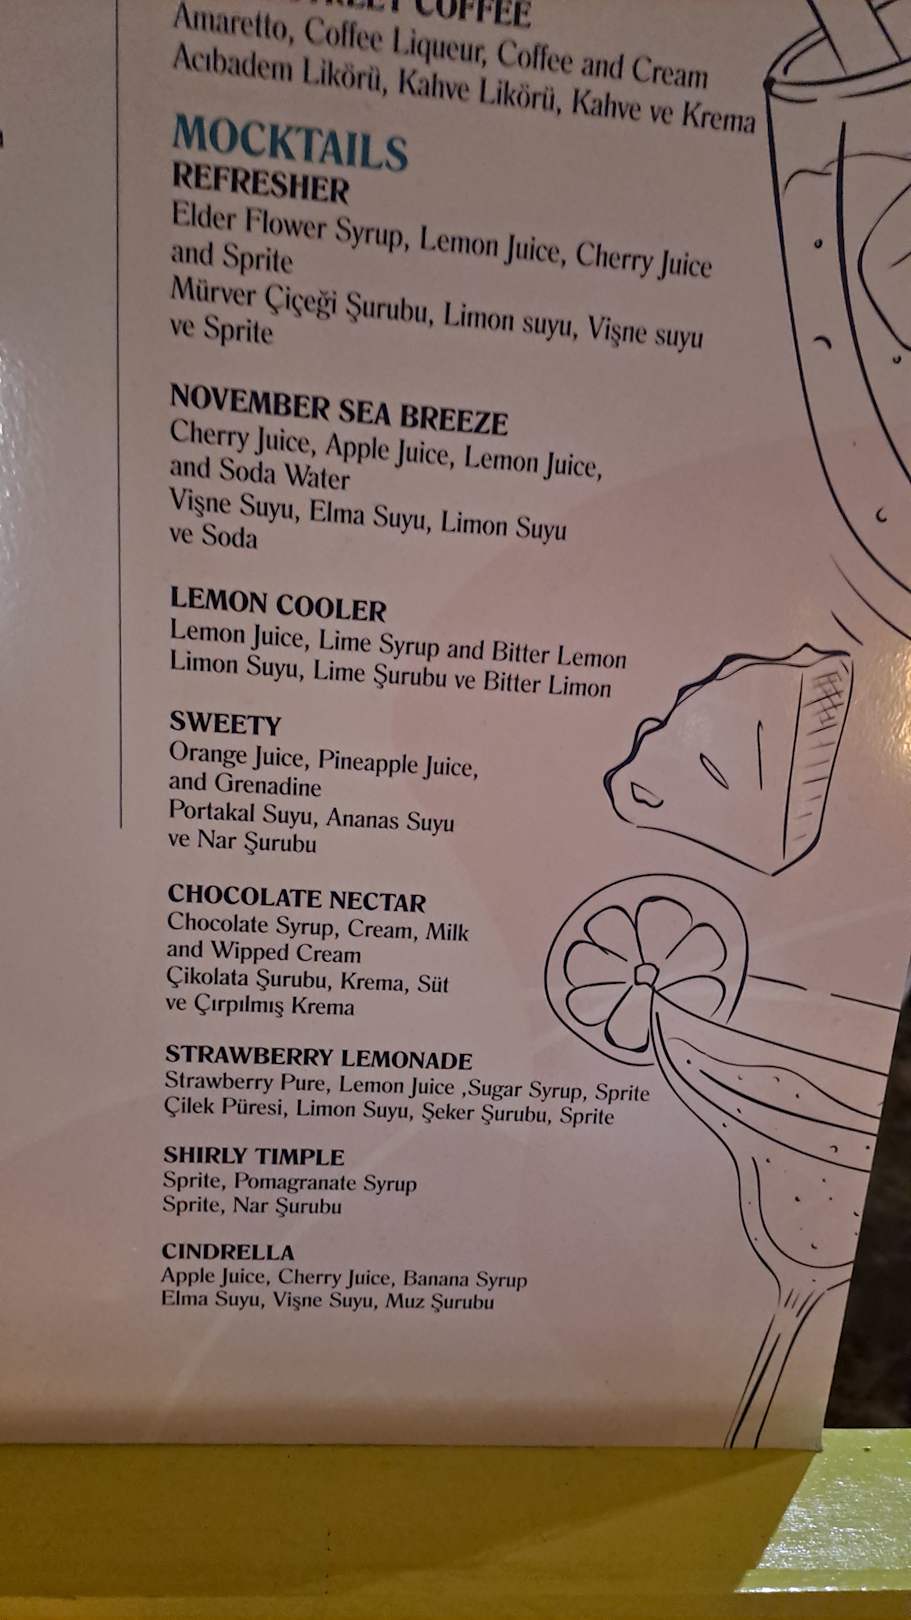 COFFEE
Amaretto, Coffee Liqueur, Coffee and Cream
Acıbadem Likörü, Kahve Likörü, Kahve ve Krema
MOCKTAILS
REFRESHER
Elder Flower Syrup, Lemon Juice, Cherry Juice
and Sprite
Mürver Çiçeği Şurubu, Limon suyu, Vişne suyu
ve Sprite
NOVEMBER SEA BREEZE
Cherry Juice, Apple Juice, Lemon Juice,
and Soda Water
Vişne Suyu, Elma Suyu, Limon Suyu
ve Soda
LEMON COOLER
Lemon Juice, Lime Syrup and Bitter Lemon
Limon Suyu, Lime Şurubu ve Bitter Limon
SWEETY
Orange Juice, Pineapple Juice,
and Grenadine
Portakal Suyu, Ananas Suyu
ve Nar Şurubu
CHOCOLATE NECTAR
Chocolate Syrup, Cream, Milk
and Wipped Cream
Çikolata Şurubu, Krema, Süt
ve Çırpılmış Krema
STRAWBERRY LEMONADE
Strawberry Pure, Lemon Juice ,Sugar Syrup, Sprite
Çilek Püresi, Limon Suyu, Şeker Şurubu, Sprite
SHIRLY TIMPLE
Sprite, Pomagranate Syrup
Sprite, Nar Şurubu
CINDRELLA
Apple Juice, Cherry Juice, Banana Syrup
Elma Suyu, Vişne Suyu, Muz Şurubu